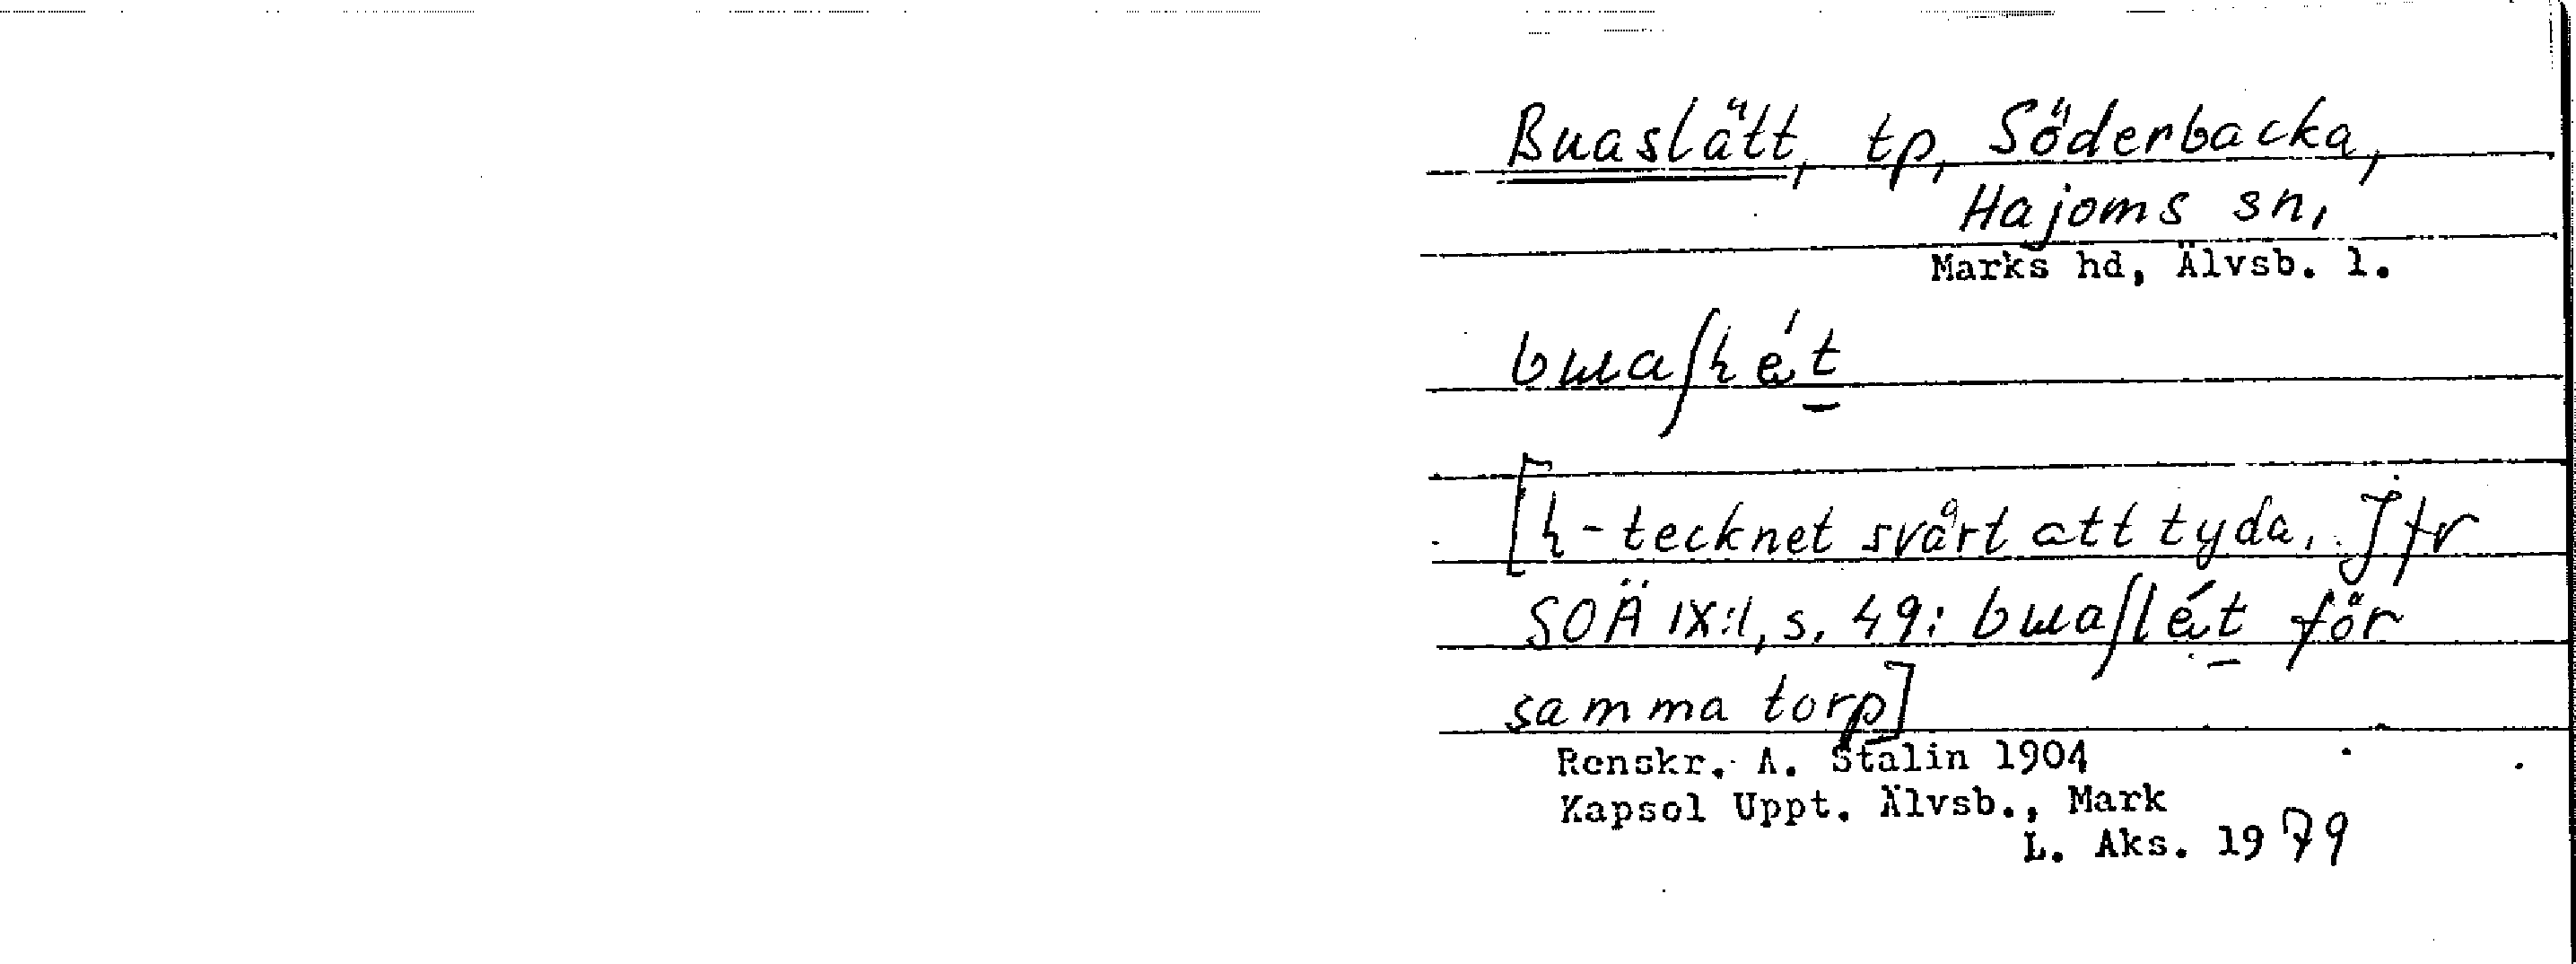 Buaslätt, tp, Söderbacka,
Hajoms sn,
Marks hd, Älvsb. l.
bɯaʃhét
[h-tecknet svårt att tyda. Jfr
SOÄ IX:1, s. 49: bɯaʃlét för
samma torp]
Renskr. A. Stalin 1904
Kapsel Uppt. Älvsb., Mark
L. Aks. 1979